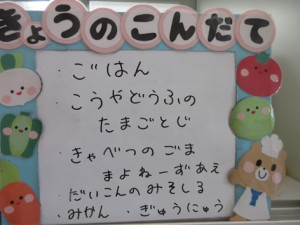 きょうのこんだて
・ごはん
・こうやどうふの
たまごとじ
・きゃべつのごま
まよねーずあえ
・だいこんのみそしる
・みかん ・ぎゅうにゅう